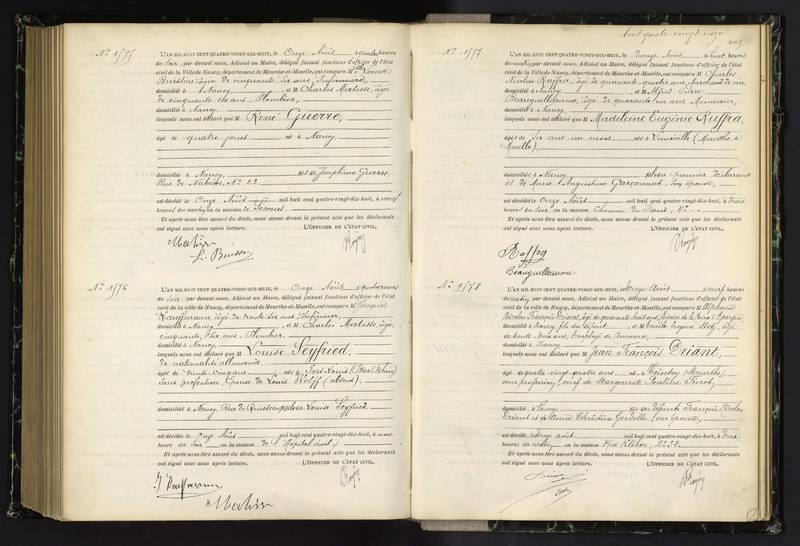 N° 1575
L'AN MIL HUIT CENT QUATRE-VINGT-DIX-HUIT, le Onze Août à quatre heures
du Soir, par devant nous, Adjoint au Maire, délégué faisant fonctions d'officier de l'état
civil de la Ville de Nancy, département de Meurthe-et-Moselle, ont comparu M Louis
Buisson, âgé de cinquante six ans, Infirmier,
domicilié à Nancy, et M Charles Matisse, âgé
de cinquante six ans, Plombier,
domicilié à Nancy,
lesquels nous ont déclaré que M René Guerre,
âgé de quatre jours né à Nancy
domicilié à Nancy, fils de Joséphine Guerre,
Rue de Nabécor, N° 23
est décédé le Onze Août mil huit cent quatre-vingt-dix-huit, à neuf
heures du matin, en la maison de Secours
Et après nous être assuré du décès, nous avons dressé le présent acte que les déclarants
ont signé avec nous après lecture. L'OFFICIER DE L'ÉTAT CIVIL,
Matisse
L. Buisson
N° 1576
L'AN MIL HUIT CENT QUATRE-VINGT-DIX-HUIT, le Onze Août à quatre heures
du Soir, par devant nous, Adjoint au Maire, délégué faisant fonctions d'officier de l'état
civil de la ville de Nancy, département de Meurthe-et-Moselle, ont comparu M Jacques
Kauffmann, âgé de trente six ans, Infirmier,
domicilié à Nancy et M Charles Matisse, âgé
cinquante six ans, Plombier,
domicilié à Nancy,
lesquels nous ont déclaré que M Louise Seyfried,
de nationalité allemande
âgée de trente cinq ans née à Fort-Louis (Bas-Rhin)
Sans profession, Epouse de Louis Wolff (absent).
domiciliée à Nancy, Rue de Louise Seyfried
est décédée le Onze Août mil huit cent quatre-vingt-dix-huit, à une
heure du Soir en la maison de l'Hôpital civil
Et après nous être assuré du décès, nous avons dressé le présent acte que les déclarants
ont signé avec nous après lecture. L'OFFICIER DE L'ÉTAT CIVIL,
J Kauffmann
Matisse
Cent quatre vingt seize
N° 1577
L'AN MIL HUIT CENT QUATRE-VINGT-DIX-HUIT, le Douze Août à huit heures
du matin, par devant nous, Adjoint au Maire, délégué faisant fonctions d'officier de l'état
civil de la Ville de Nancy, département de Meurthe-et-Moselle, ont comparu M Charles
Nicolas Ruffra, âgé de quarante quatre ans,
domicilié à Nancy et M Alfred Pierre
Beauguillaume, âgé de quarante un ans Menuisier,
domicilié à Nancy,
lesquels nous ont déclaré que M Madeleine Eugénie Ruffra,
âgée de six ans un mois née à Lunéville (Meurthe &
Moselle)
domiciliée à Nancy fille du premier déclarant
et de Marie Augustine Garçonnat, son épouse,
est décédée le Onze Août mil huit cent quatre-vingt-dix-huit, à trois
heures du Soir, en la maison Chemin du
Et après nous être assuré du décès, nous avons dressé le présent acte que les déclarants
ont signé avec nous après lecture. L'OFFICIER DE L'ÉTAT CIVIL,
Ruffra
Beauguillaume
N° 1578
L'AN MIL HUIT CENT QUATRE-VINGT-DIX-HUIT, le Août à neuf heures
du matin, par devant nous, Adjoint au Maire, délégué faisant fonctions d'officier de l'état
civil de la ville de Nancy, département de Meurthe-et-Moselle, ont comparu M
Nicolas François Driant, âgé de quarante
domicilié à Nancy, fils du défunt et M Emile Eugène
de trente ans, Employé de Commerce,
domicilié à Nancy,
lesquels nous ont déclaré que M Jean François Driant,
âgé de quatre-vingt-quatre ans né à (Meurthe),
sans profession, veuf de Marguerite
domicilié à Nancy, fils des défunts François Nicolas
Driant et de Anne Christine son épouse,
est décédé août mil huit cent quatre-vingt-dix-huit, à
heures du matin en la maison Rue Kléber, N° 32.
Et après nous être assuré du décès, nous avons dressé le présent acte que les déclarants
ont signé avec nous après lecture. L'OFFICIER DE L'ÉTAT CIVIL,